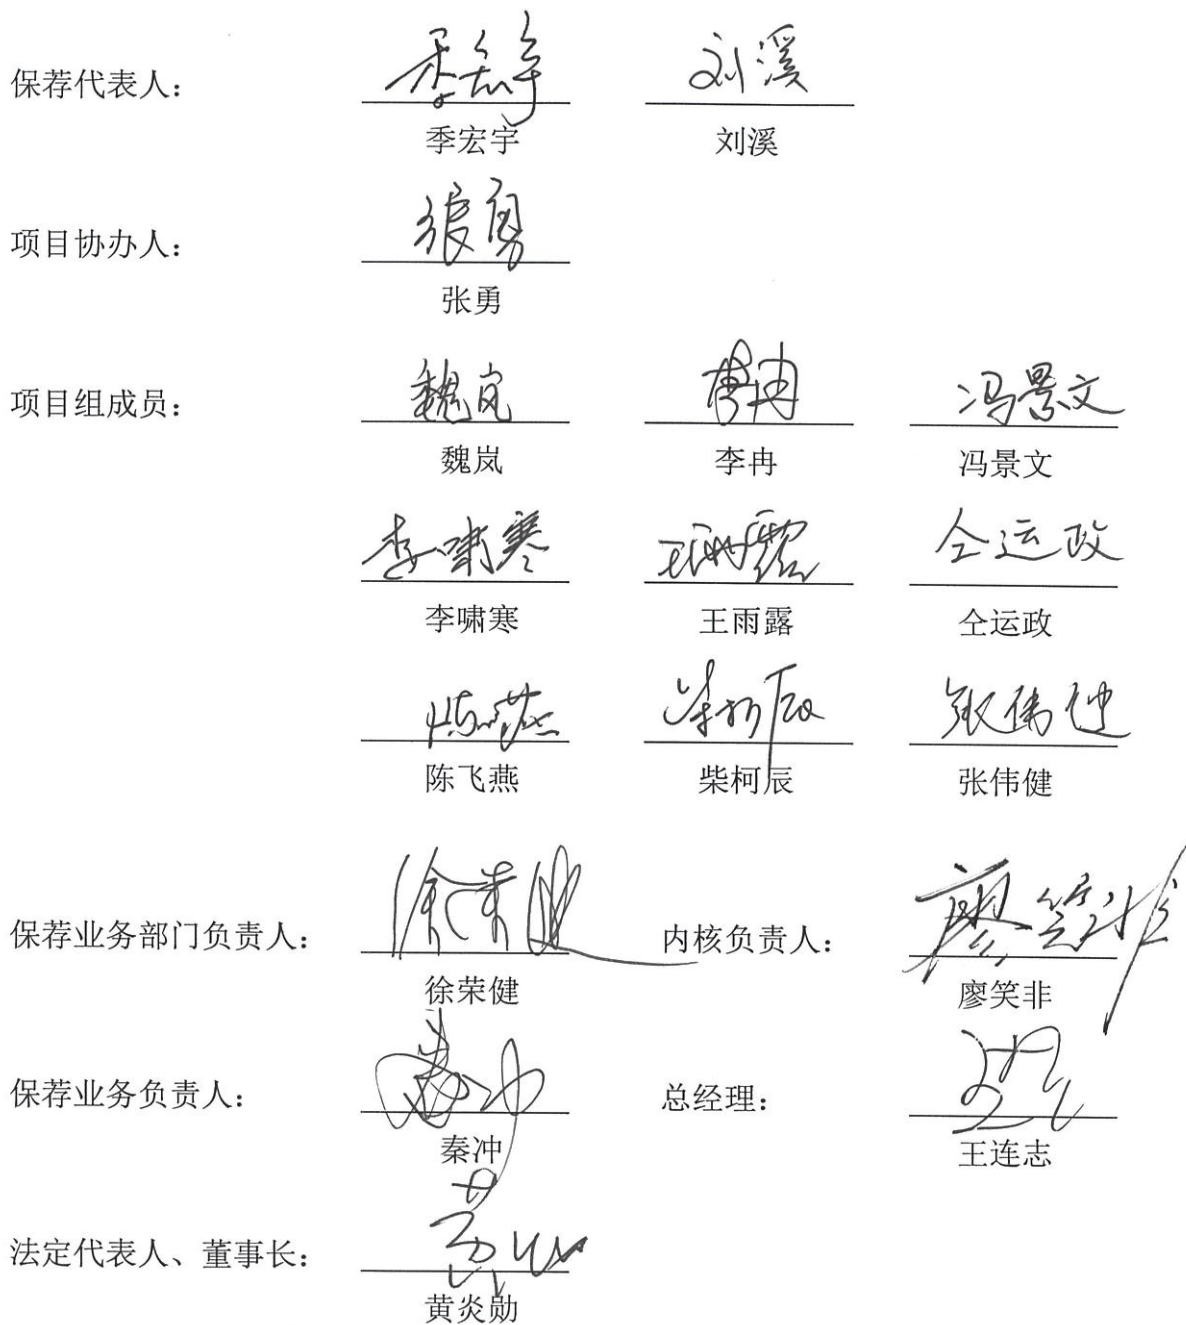 保荐代表人：
季宏宇 刘溪
项目协办人：
张勇
项目组成员：
魏岚 李冉 冯景文
李啸寒 王雨露 仝运政
陈飞燕 柴柯辰 张伟健
保荐业务部门负责人： 内核负责人：
徐荣健 廖笑非
保荐业务负责人： 总经理：
秦冲 王连志
法定代表人、董事长：
黄炎勋